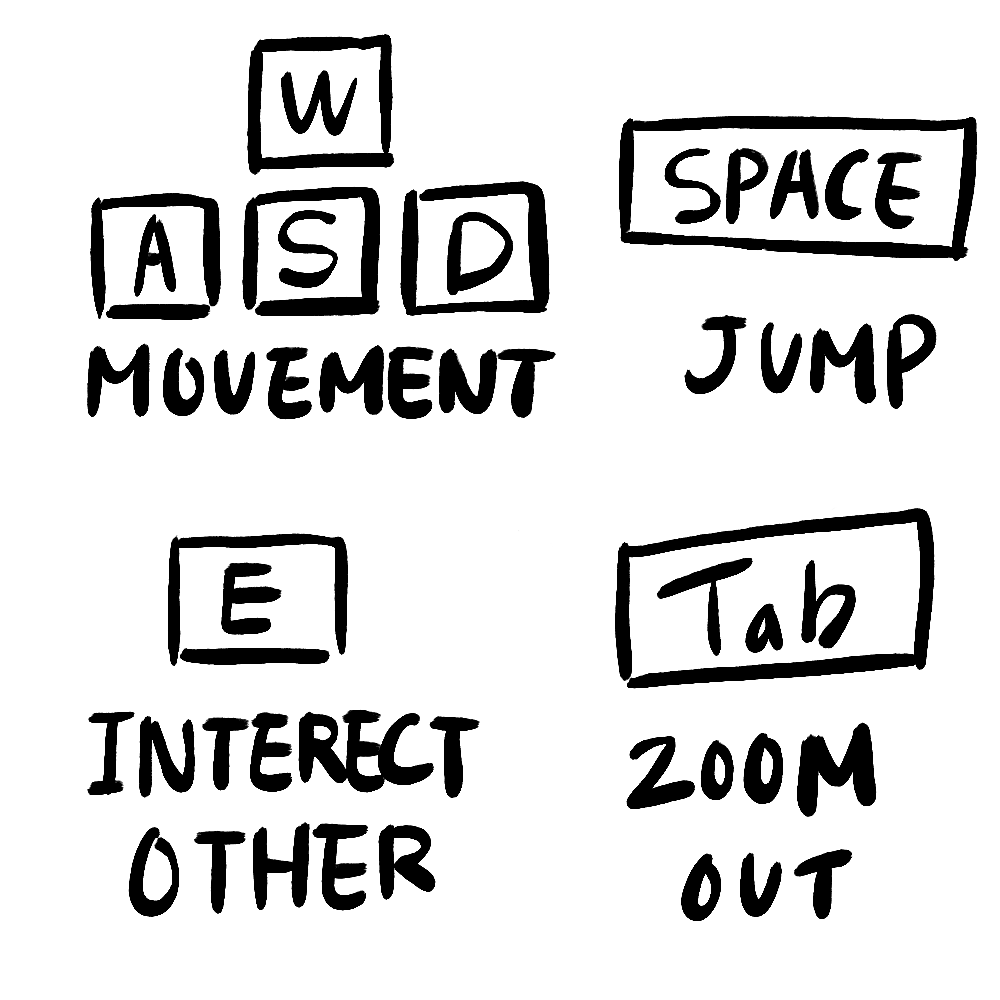 W
A S D
MOVEMENT
SPACE
JUMP
E
INTERECT
OTHER
Tab
ZOOM
OUT